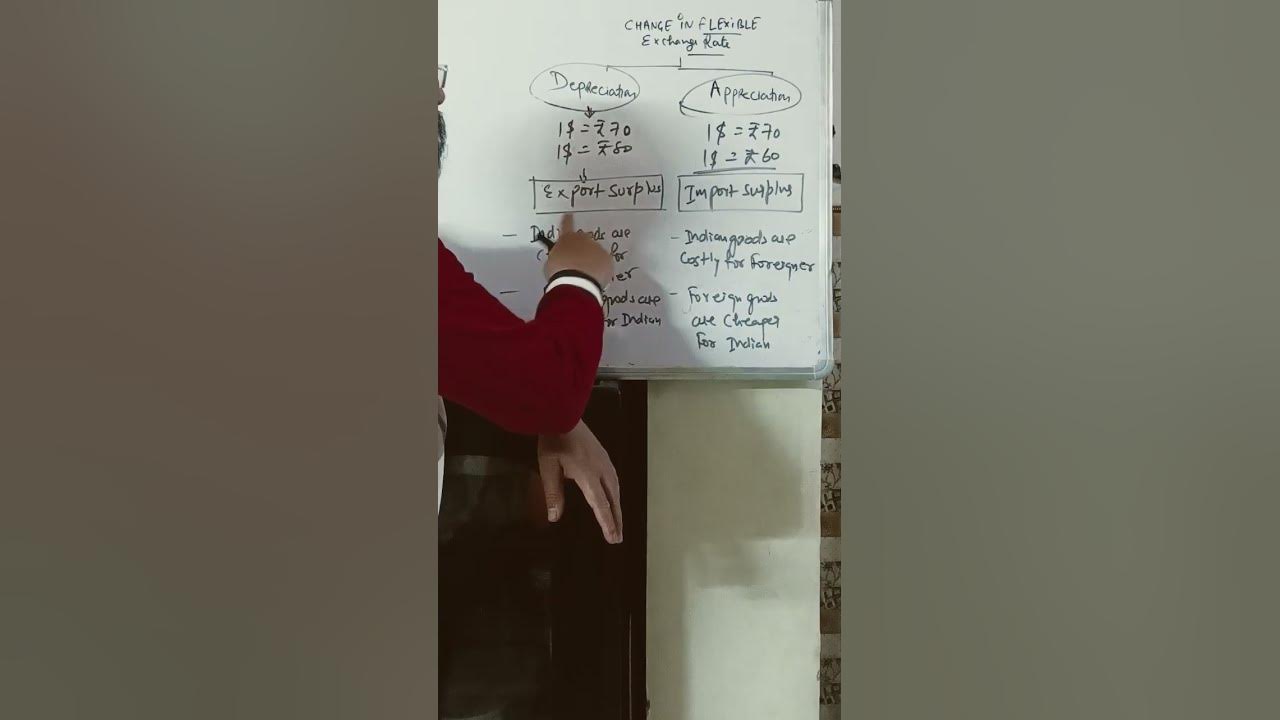 CHANGE IN FLEXIBLE
Exchange Rate
Depreciation
1$ = ₹70
1$ = ₹80
Export Surplus
are
for
goods are
for Indian
Appreciation
1$ = ₹70
1$ = ₹60
Import Surplus
- Indian goods are
Costly for Foreigner
- Foreign goods
are Cheaper
For Indian